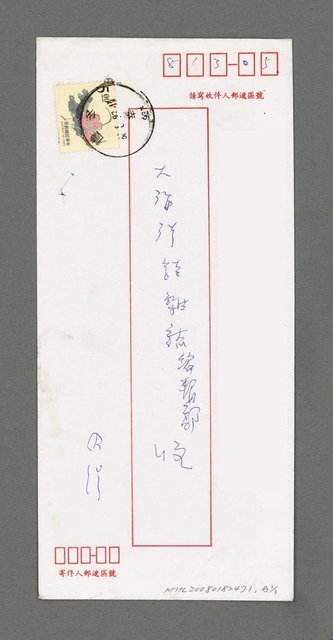 813-05
請寫收件人郵遞區號
大海洋詩雜誌編輯部 收
寄件人郵遞區號
NMTL20080182471